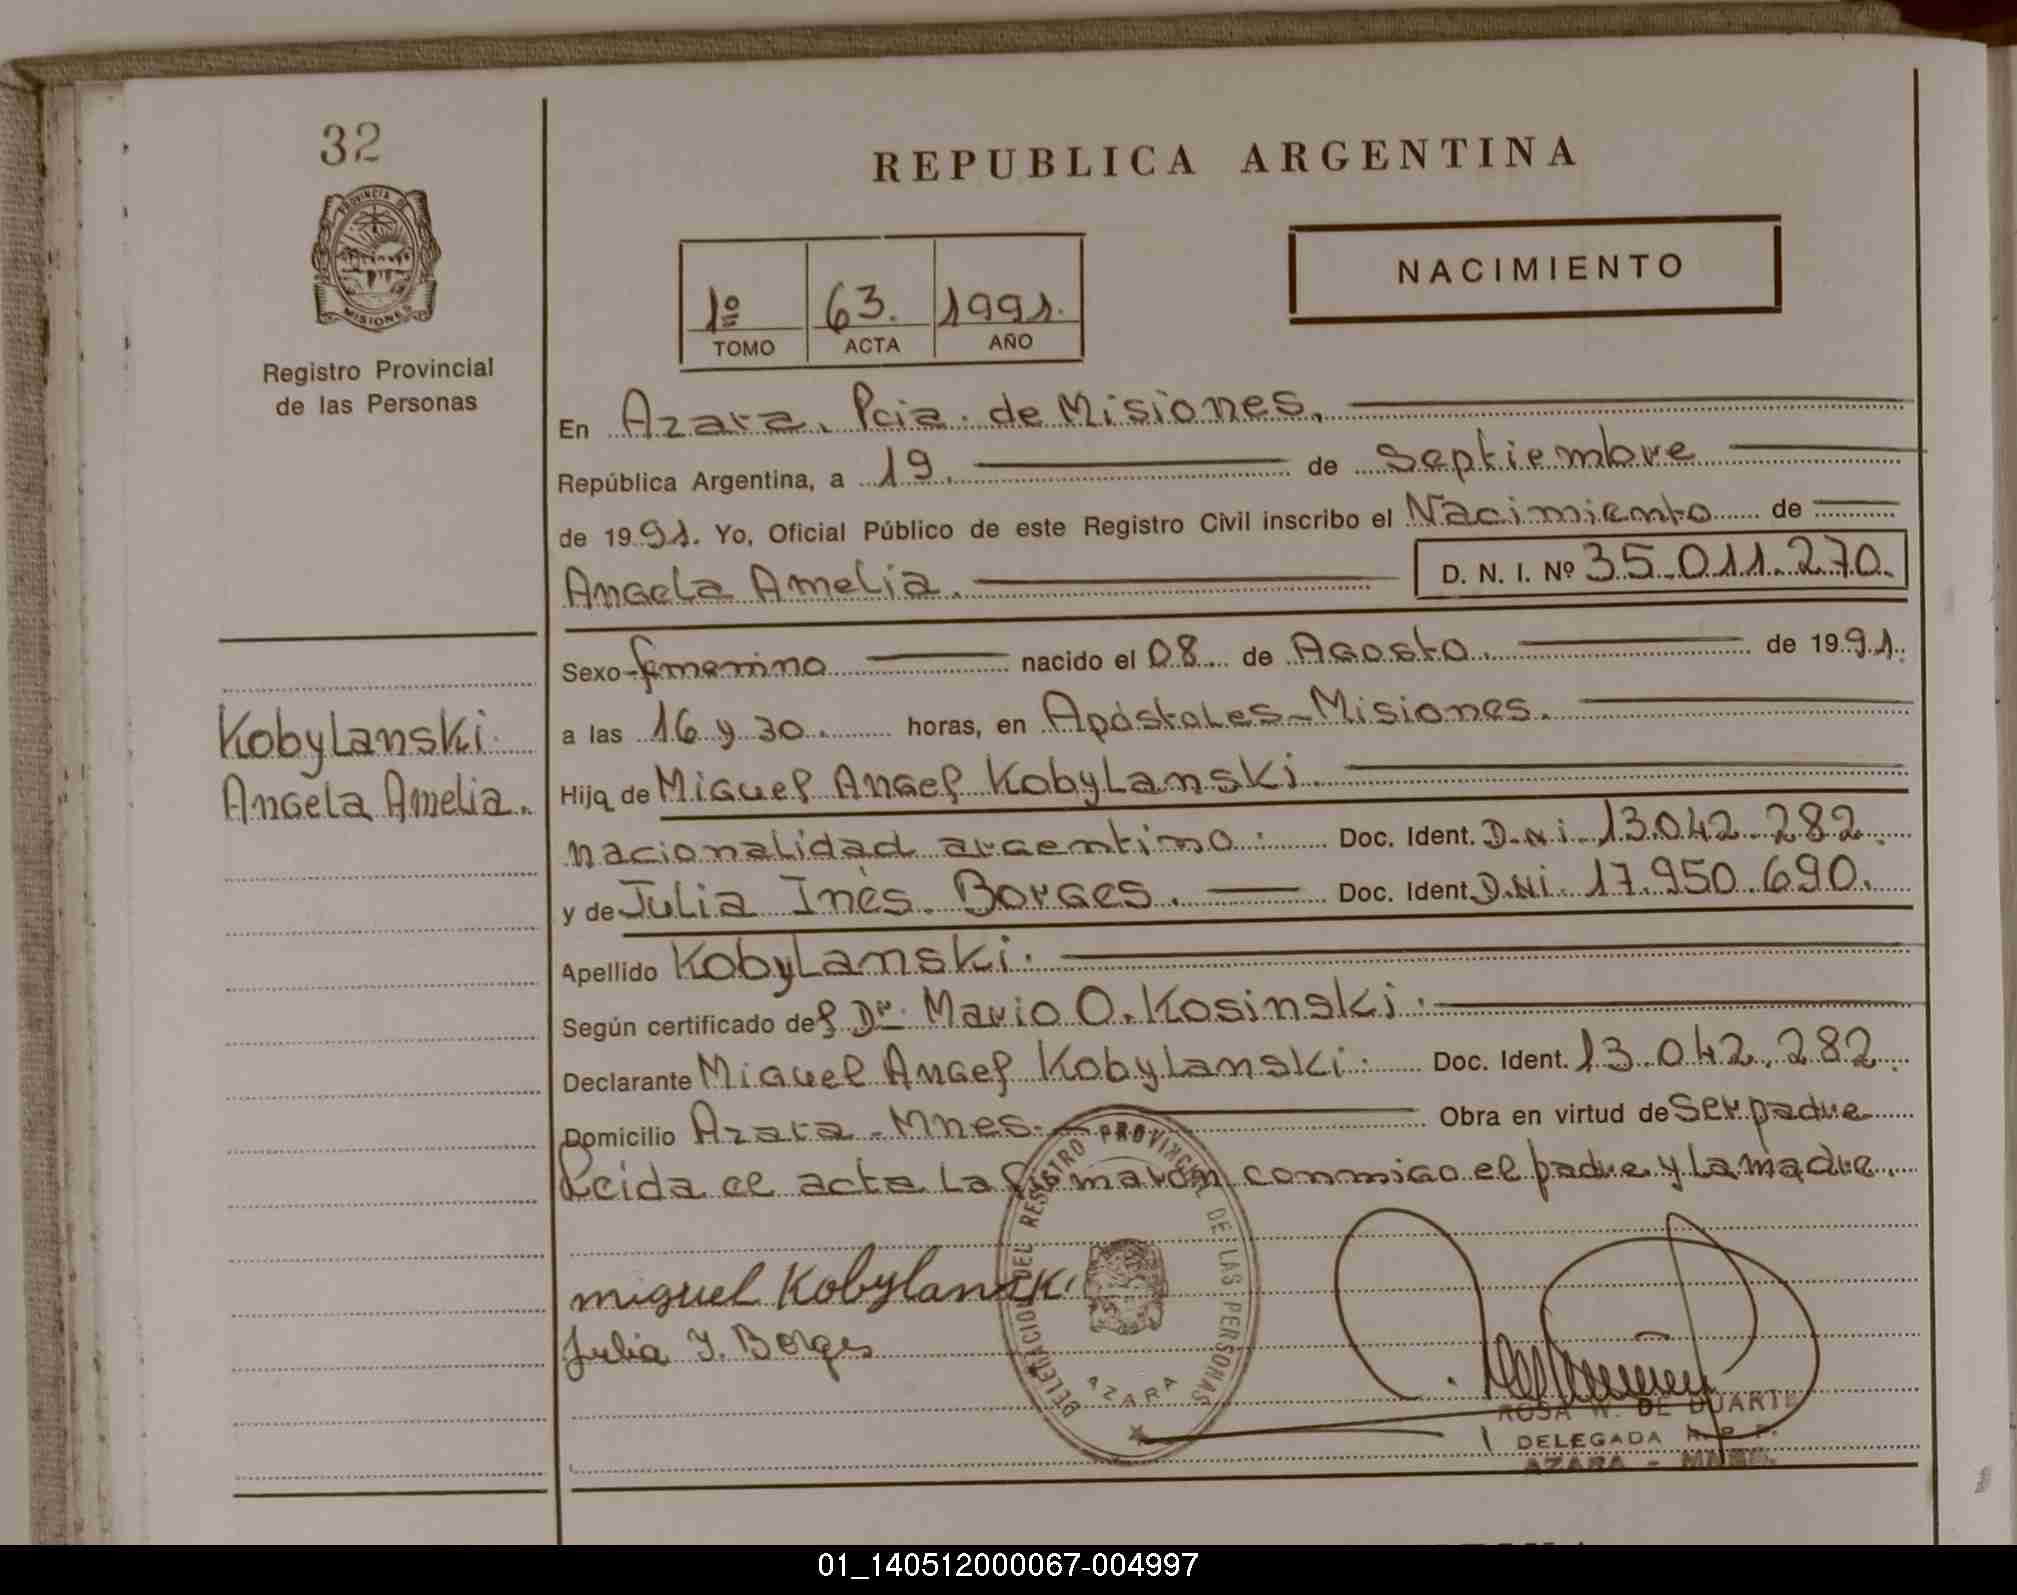 32
PROVINCIA DE
MISIONES
Registro Provincial
de las Personas
Kobylanski.
Angela Amelia.
REPUBLICA ARGENTINA
1º 63. 1991.
TOMO ACTA AÑO
NACIMIENTO
En Azara. Pcia. de Misiones.
República Argentina, a 19. de Septiembre
de 1991. Yo, Oficial Público de este Registro Civil inscribo el Nacimiento de
Angela Amelia. D. N. I. Nº 35.011.270.
Sexo femenino nacido el 08 de Agosto. de 1991.
a las 16 y 30. horas, en Apóstoles-Misiones.
Hija de Miguel Angel Kobylanski.
nacionalidad argentino. Doc. Ident. D.N.i. 13.042.282.
y de Julia Inés. Borges. Doc. Ident. D.Ni. 17.950.690.
Apellido Kobylanski.
Según certificado del Dr. Mario O. Kosinski.
Declarante Miguel Angel Kobylanski. Doc. Ident. 13.042.282.
Domicilio Azara-Mnes. Obra en virtud de ser padre
Leida el acta la firmaron conmigo el padre y la madre.
miguel Kobylanski
Julia I. Borges
DELEGACION DEL REGISTRO PROVINCIAL DE LAS PERSONAS
AZARA
ROSA W. DE DUARTE
DELEGADA R. P. P.
AZARA - MNES.
01_140512000067-004997